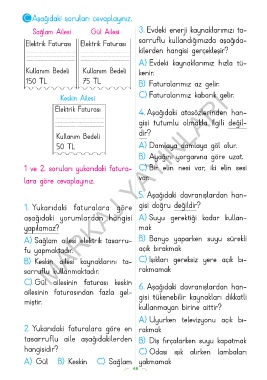 C Aşağıdaki soruları cevaplayınız.
Sağlam Ailesi
Elektrik Faturası
Kullanım Bedeli
150 TL
Gül Ailesi
Elektrik Faturası
Kullanım Bedeli
75 TL
Keskin Ailesi
Elektrik Faturası
Kullanım Bedeli
50 TL
1 ve 2. soruları yukarıdaki fatura-
lara göre cevaplayınız.
1. Yukarıdaki faturalara göre
aşağıdaki yorumlardan hangisi
yapılamaz?
A) Sağlam ailesi elektrik tasarru-
fu yapmaktadır.
B) Keskin ailesi kaynaklarını ta-
sarruflu kullanmaktadır.
C) Gül ailesinin faturası keskin
ailesinin faturasından fazla gel-
miştir.
2. Yukarıdaki faturalara göre en
tasarruflu aile aşağıdakilerden
hangisidir?
A) Gül B) Keskin C) Sağlam
3. Evdeki enerji kaynaklarımızı ta-
sarruflu kullandığımızda aşağıda-
kilerden hangisi gerçekleşir?
A) Evdeki kaynaklarımız hızla tü-
kenir.
B) Faturalarımız az gelir.
C) Faturalarımız kabarık gelir.
4. Aşağıdaki atasözlerinden han-
gisi tutumlu olmakla ilgili değil-
dir?
A) Damlaya damlaya göl olur.
B) Ayağını yorganına göre uzat.
C) Bir elin nesi var, iki elin sesi
var.
5. Aşağıdaki davranışlardan han-
gisi doğru değildir?
A) Suyu gerektiği kadar kullan-
mak
B) Banyo yaparken suyu sürekli
açık bırakmak
C) Işıkları gereksiz yere açık bı-
rakmamak
6. Aşağıdaki davranışlardan han-
gisi tükenebilir kaynakları dikkatli
kullanmayan birine aittir?
A) Uyurken televizyonu açık bı-
rakmak
B) Diş fırçalarken suyu kapatmak
C) Odası ışık alırken lambaları
yakmamak